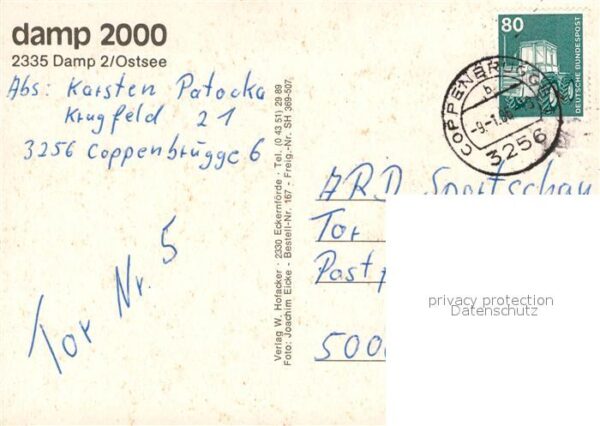 damp 2000
2335 Damp 2/Ostsee
Abs: Karsten Patocka
Krugfeld 21
3256 Coppenbrügge 6
Tor Nr. 5
Verlag W. Hofacker · 2330 Eckernförde · Tel. (0 43 51) 29 89
Foto: Joachim Eicke - Bestell-Nr. 167 - Freig.-Nr. SH 369-507
80
DEUTSCHE BUNDESPOST
COPPENBRÜGGE
b
3256
ARD Sportschau
Tor
Post
500
privacy protection
Datenschutz